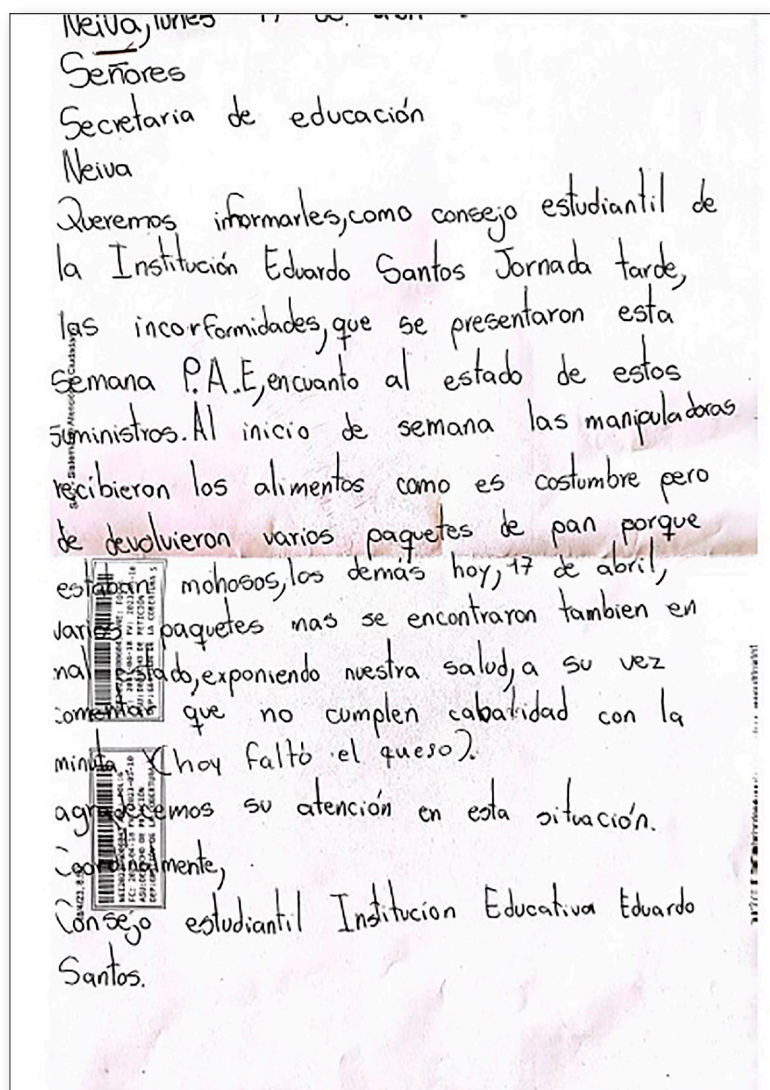 Neiva, lunes 17 de
Señores
Secretaria de educación
Neiva
Queremos informarles, como consejo estudiantil de
la Institución Eduardo Santos Jornada tarde,
las inconformidades, que se presentaron esta
semana P.A.E, encuanto al estado de estos
suministros. Al inicio de semana las manipuladoras
recibieron los alimentos como es costumbre pero
de devolvieron varios paquetes de pan porque
estaban mohosos, los demás hoy, 17 de abril,
varios paquetes mas se encontraron tambien en
mal estado, exponiendo nuestra salud, a su vez
comentan que no cumplen cabalidad con la
minuta (hoy faltó el queso).
agradecemos su atención en esta situación.
Coordinalmente,
Consejo estudiantil Institucion Educativa Eduardo
Santos.